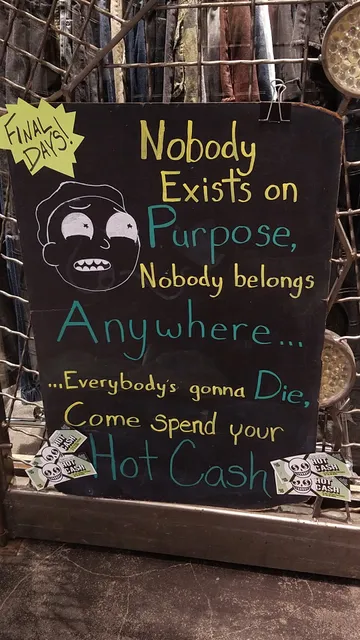 FINAL
DAYS!
Nobody
Exists on
Purpose,
Nobody belongs
Anywhere...
...Everybody's gonna Die,
Come spend your
Hot Cash
HOT
CASH
HOT
CASH
HOT
CASH
HOT
CASH